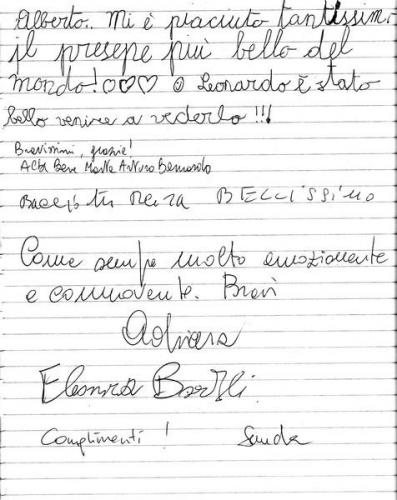 Alberto.. Mi è piaciuto tantissimo
il presepe più bello del
mondo! ♡♡♡ Leonardo è stato
bello venire a vederlo !!!
Bravissimi, grazie!
Marta Arturo
BELLISSIMO
Come sempre molto emozionante
e commovente. Bravi
Adriana
Eleonora
Complimenti !